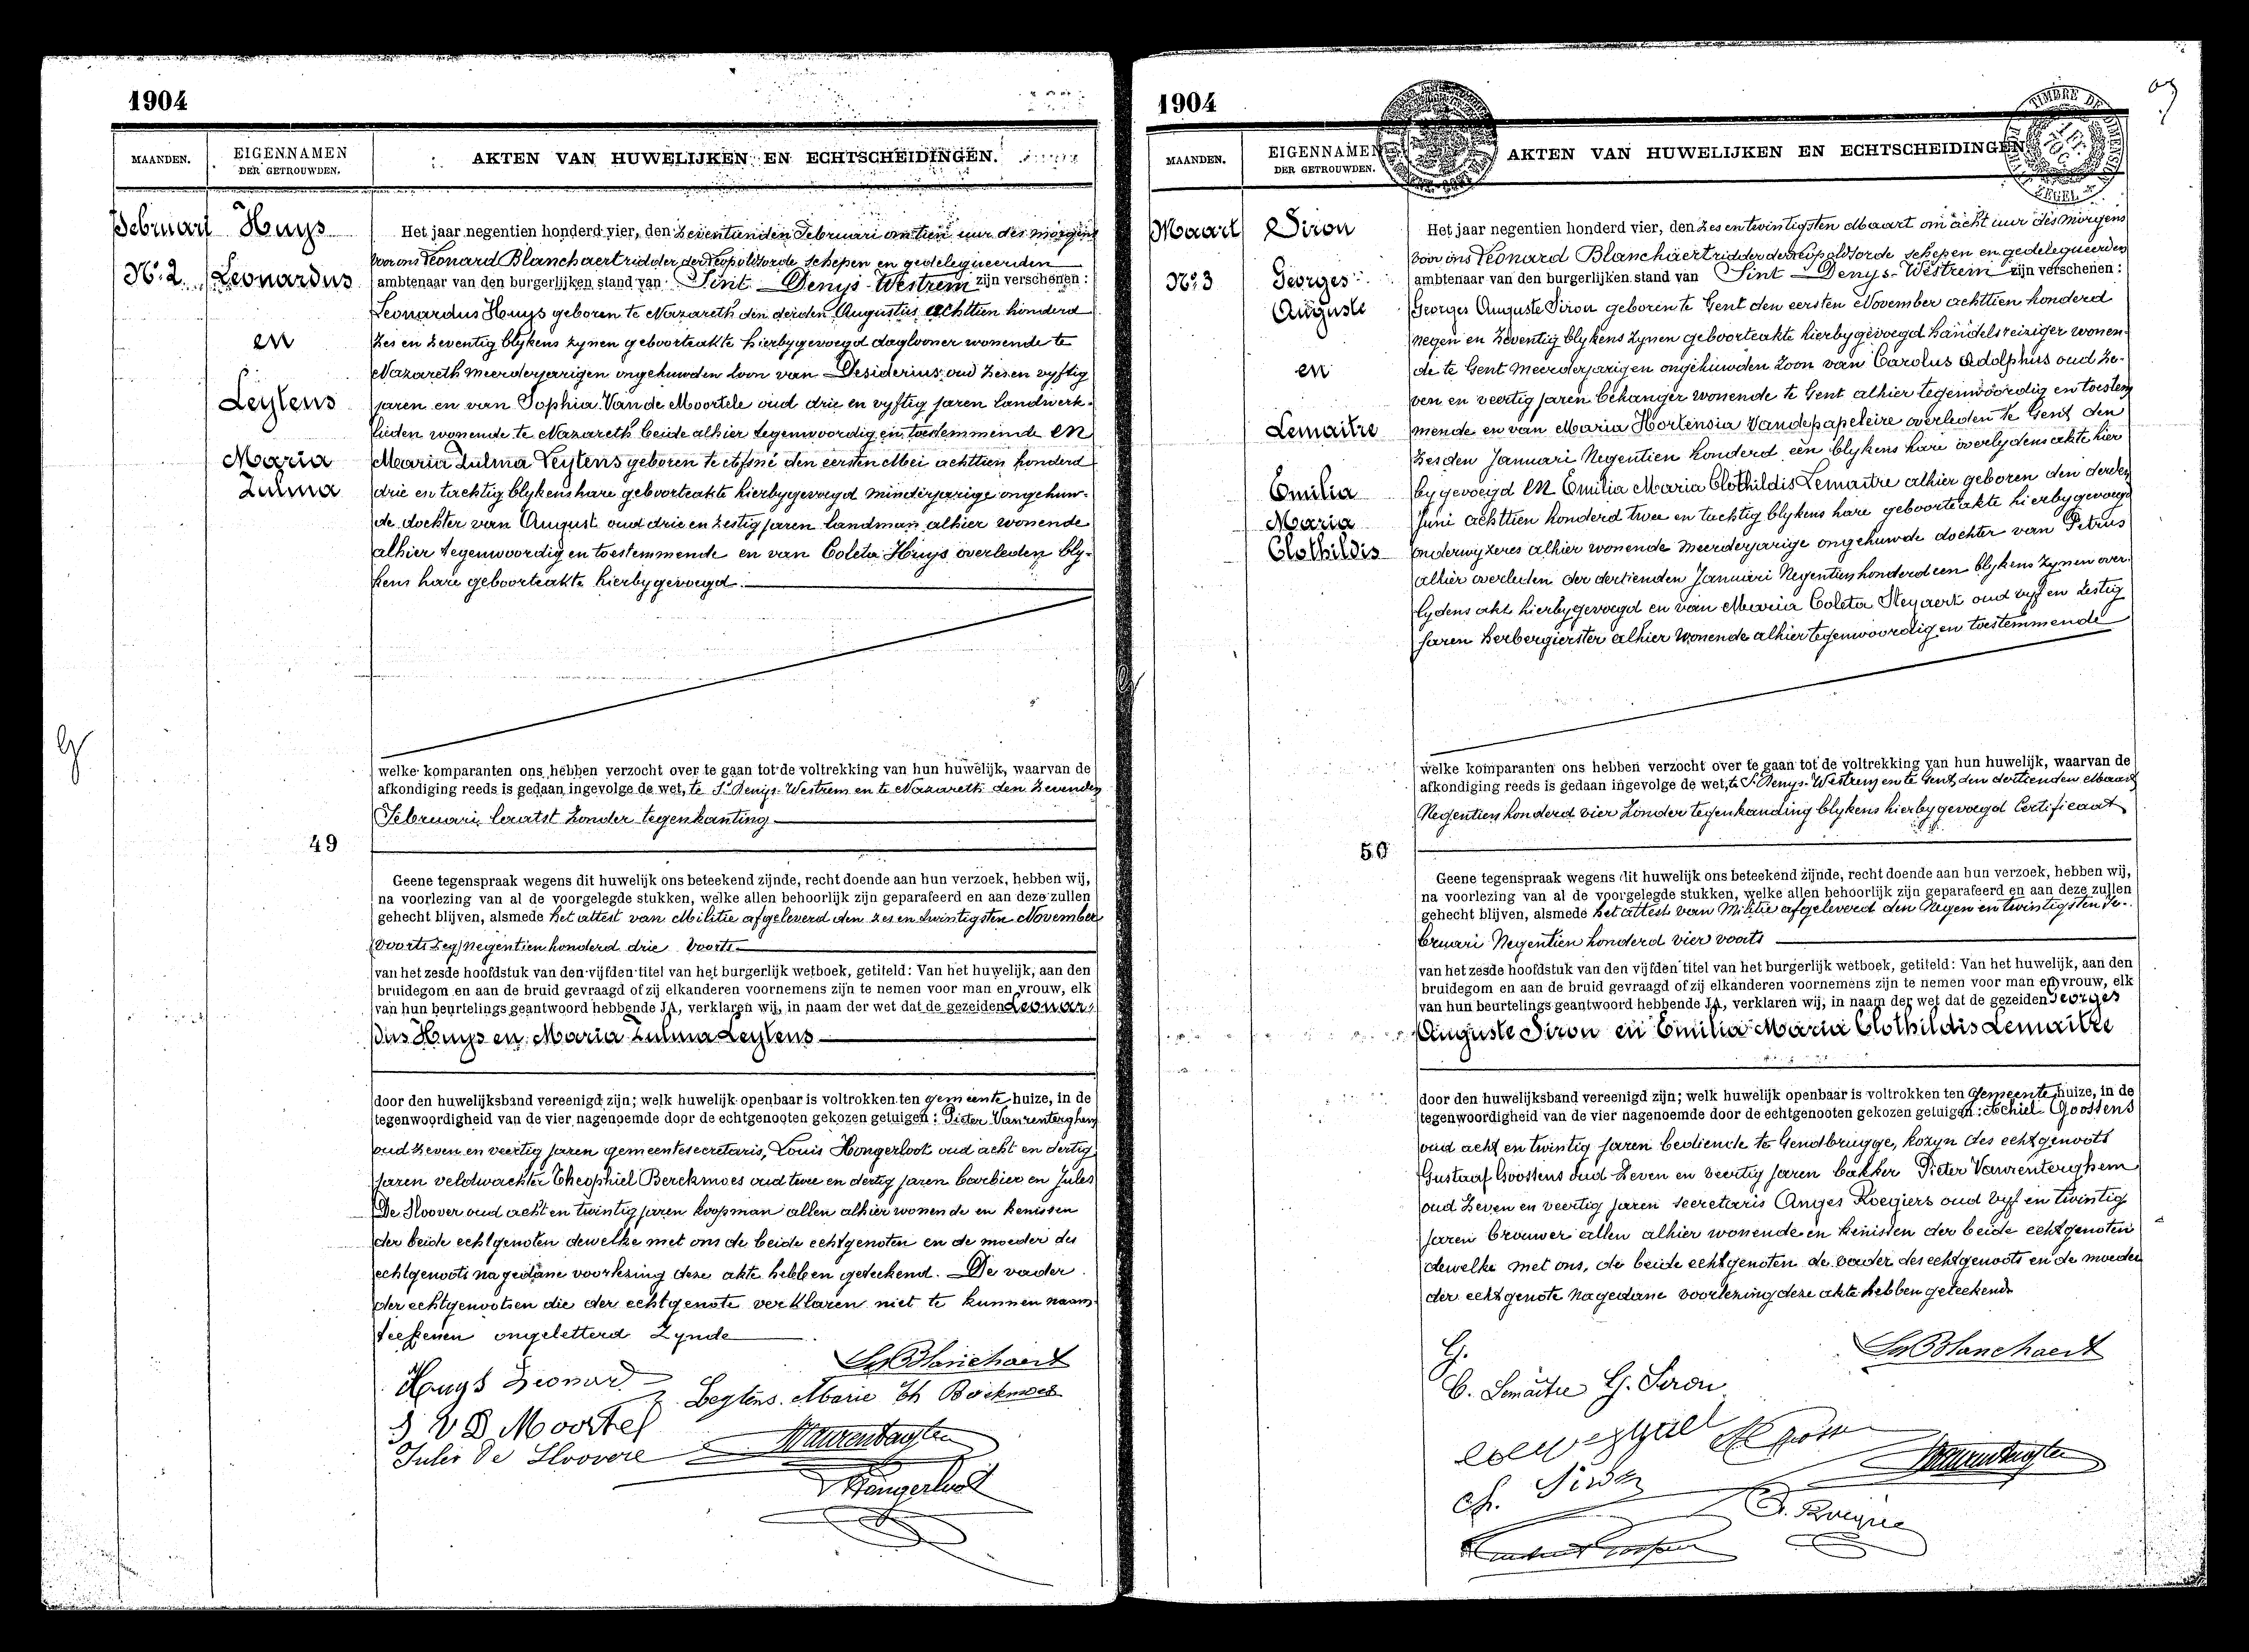 1904
MAANDEN.
EIGENNAMEN
DER GETROUWDEN.
AKTEN VAN HUWELIJKEN EN ECHTSCHEIDINGEN.
Februari
Huys
No. 2
Leonardus
en
Leytens
Maria
Zulma
Het jaar negentien honderd vier, den zeventienden Februari om tien uur des morgens
voor ons Leonard Blanchaert ridder der Leopoldsorde schepen en gedelegueerden
ambtenaar van den burgerlijken stand van Sint Denys-Westrem zijn verschenen:
Leonardus Huys geboren te Nazareth den derden Augustus achttien honderd
zes en zeventig blykens zynen geboorteakte hierbygevoegd dagloner wonende te
Nazareth meerderjarigen ongehuwden zoon van Desiderius oud zes en vyftig
jaren en van Sophia Van de Moortele oud drie en vyftig jaren landwerk-
lieden wonende te Nazareth beide alhier tegenwoordig en toestemmende en
Maria Zulma Leytens geboren te Afsné den eersten Mei achttien honderd
drie en tachtig blykens hare geboorteakte hierbygevoegd minderjarige ongehuw-
de dochter van August oud drie en zestig jaren landman alhier wonende
alhier tegenwoordig en toestemmende en van Coleta Huys overleden bly-
kens hare geboorteakte hierbygevoegd.
welke komparanten ons hebben verzocht over te gaan tot de voltrekking van hun huwelijk, waarvan de
afkondiging reeds is gedaan ingevolge de wet, te St Denys-Westrem en te Nazareth den zevenden
Februari laatst zonder tegenkanting
49
Geene tegenspraak wegens dit huwelijk ons beteekend zijnde, recht doende aan hun verzoek, hebben wij,
na voorlezing van al de voorgelegde stukken, welke allen behoorlijk zijn geparafeerd en aan deze zullen
gehecht blijven, alsmede het attest van Militie afgeleverd den zes en twintigsten November
(voorts zeg) negentien honderd drie voorts
van het zesde hoofdstuk van den vijfden titel van het burgerlijk wetboek, getiteld: Van het huwelijk, aan den
bruidegom en aan de bruid gevraagd of zij elkanderen voornemens zijn te nemen voor man en vrouw, elk
van hun beurtelings geantwoord hebbende JA, verklaren wij, in naam der wet dat de gezeiden Leonar-
dus Huys en Maria Zulma Leytens
door den huwelijksband vereenigd zijn; welk huwelijk openbaar is voltrokken ten gemeente huize, in de
tegenwoordigheid van de vier nagenoemde door de echtgenooten gekozen getuigen: Pieter Vanrenterghem
oud zeven en veertig jaren gemeentesecretaris, Louis Hongerloot oud acht en dertig
jaren veldwachter Theophiel Berckmoes oud twee en dertig jaren barbier en Jules
De Sloover oud acht en twintig jaren koopman allen alhier wonende en kenissen
der beide echtgenoten dewelke met ons de beide echtgenoten en de moeder des
echtgenoots na gedane voorlezing deze akte hebben geteekend. De vader
der echtgenooten die der echtgenote verklaren niet te kunnen naam-
teekenen ongeletterd zynde
Ld Blanchaert
Huys Leonard
Z. Leytens Marie Th Berckmoes
S V D Moortel
Jules De Sloovere
Hongerloot
1904
MAANDEN.
EIGENNAMEN
DER GETROUWDEN.
AKTEN VAN HUWELIJKEN EN ECHTSCHEIDINGEN
TIMBRE DE
Maart
Siron
No. 3
Georges
Auguste
en
Lemaitre
Emilia
Maria
Clothildis
Het jaar negentien honderd vier, den zes en twintigsten Maart om acht uur des morgens
voor ons Leonard Blanchaert ridder der Leopoldsorde schepen en gedelegueerden
ambtenaar van den burgerlijken stand van Sint Denys-Westrem zijn verschenen:
Georges Auguste Siron geboren te Gent den eersten November achttien honderd
negen en zeventig blykens zynen geboorteakte hierbygevoegd handelsreiziger wonen-
de te Gent meerderjarigen ongehuwden zoon van Carolus Adolphus oud ze-
ven en veertig jaren behanger wonende te Gent alhier tegenwoordig en toestem
mende en van Maria Hortensia Vandepapeleire overleden te Gent den
zesden Januari Negentien honderd een blykens hare overlydensakte hier
bygevoegd en Emilia Maria Clothildis Lemaitre alhier geboren den derden
Juni achttien honderd twee en tachtig blykens hare geboorteakte hierbygevoegd
onderwyzeres alhier wonende meerderjarige ongehuwde dochter van Petrus
alhier overleden der dertienden Januari Negentien honderd een blykens zynen over-
lydens akt hierbygevoegd en van Maria Coleta Steyaert oud vyf en zestig
jaren herbergierster alhier wonende alhier tegenwoordig en toestemmende
welke komparanten ons hebben verzocht over te gaan tot de voltrekking van hun huwelijk, waarvan de
afkondiging reeds is gedaan ingevolge de wet, te St Denys-Westrem en te Gent den dertienden Maart
Negentien honderd vier zonder tegenkanding blykens hierbygevoegd Certificaat
50
Geene tegenspraak wegens dit huwelijk ons beteekend zijnde, recht doende aan hun verzoek, hebben wij,
na voorlezing van al de voorgelegde stukken, welke allen behoorlijk zijn geparafeerd en aan deze zullen
gehecht blijven, alsmede het attest van Militie afgeleverd den Negen en twintigsten Fe-
bruari Negentien honderd vier voorts
van het zesde hoofdstuk van den vijfden titel van het burgerlijk wetboek, getiteld: Van het huwelijk, aan den
bruidegom en aan de bruid gevraagd of zij elkanderen voornemens zijn te nemen voor man en vrouw, elk
van hun beurtelings geantwoord hebbende JA, verklaren wij, in naam der wet dat de gezeiden Georges
Auguste Siron en Emilia Maria Clothildis Lemaitre
door den huwelijksband vereenigd zijn; welk huwelijk openbaar is voltrokken ten Gemeente huize, in de
tegenwoordigheid van de vier nagenoemde door de echtgenooten gekozen getuigen: Achiel Goossens
oud acht en twintig jaren bediende te Gendbrugge, kozyn des echtgenoots
Gustaaf Goossens oud zeven en veertig jaren bakker Pieter Vanrenterghem
oud zeven en veertig jaren secretaris Anges Roegiers oud vyf en twintig
jaren brouwer allen alhier wonende en kenissen der beide echtgenoten
dewelke met ons, de beide echtgenoten de vader des echtgenoots en de moeder
der echtgenote na gedane voorlezing deze akte hebben geteekend
Ld Blanchaert
G.
C. Lemaitre G. Siron
Ch. Siron